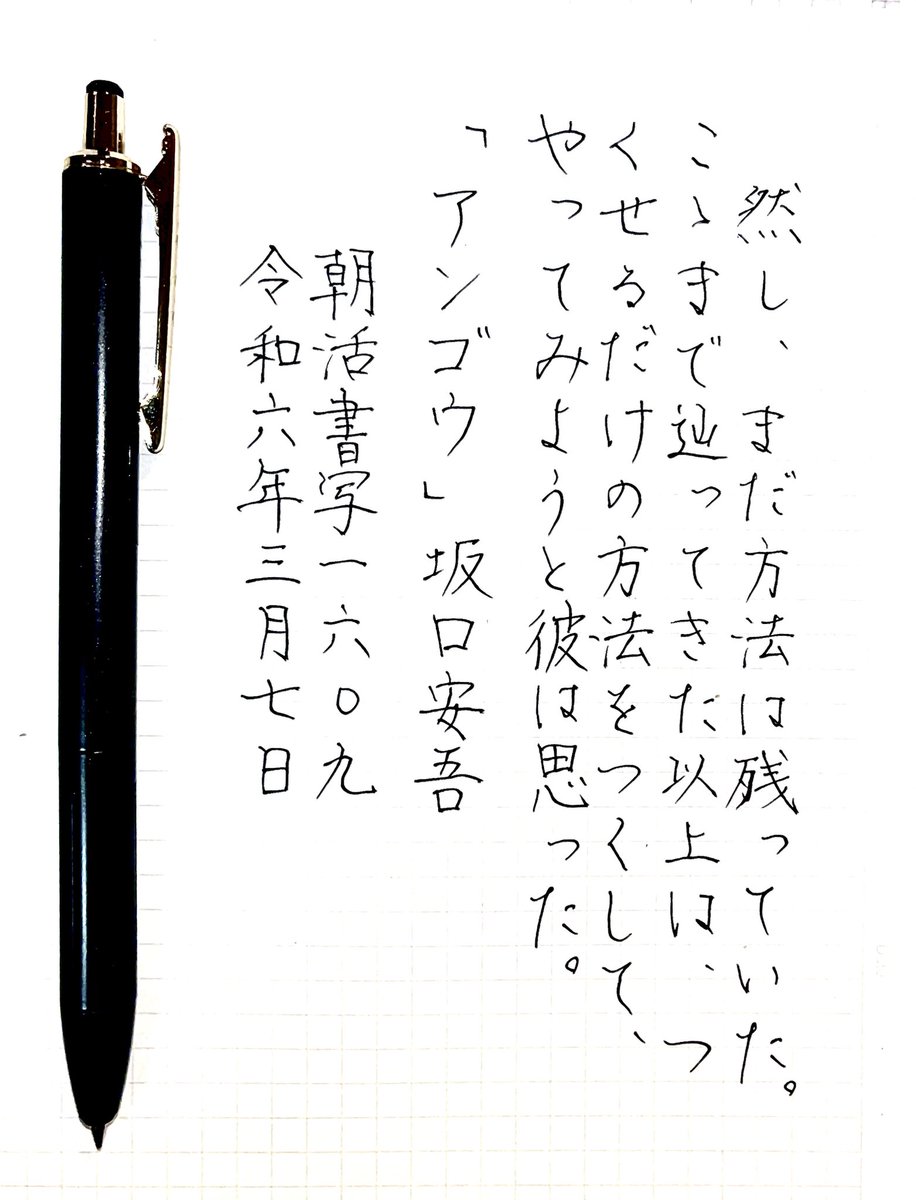 然し、まだ方法は残っていた。
こゝまで辿ってきた以上は、つ
くせるだけの方法をつくして、
やってみようと彼は思った。
「アンゴウ」坂口安吾
朝活書写一六〇九
令和六年三月七日